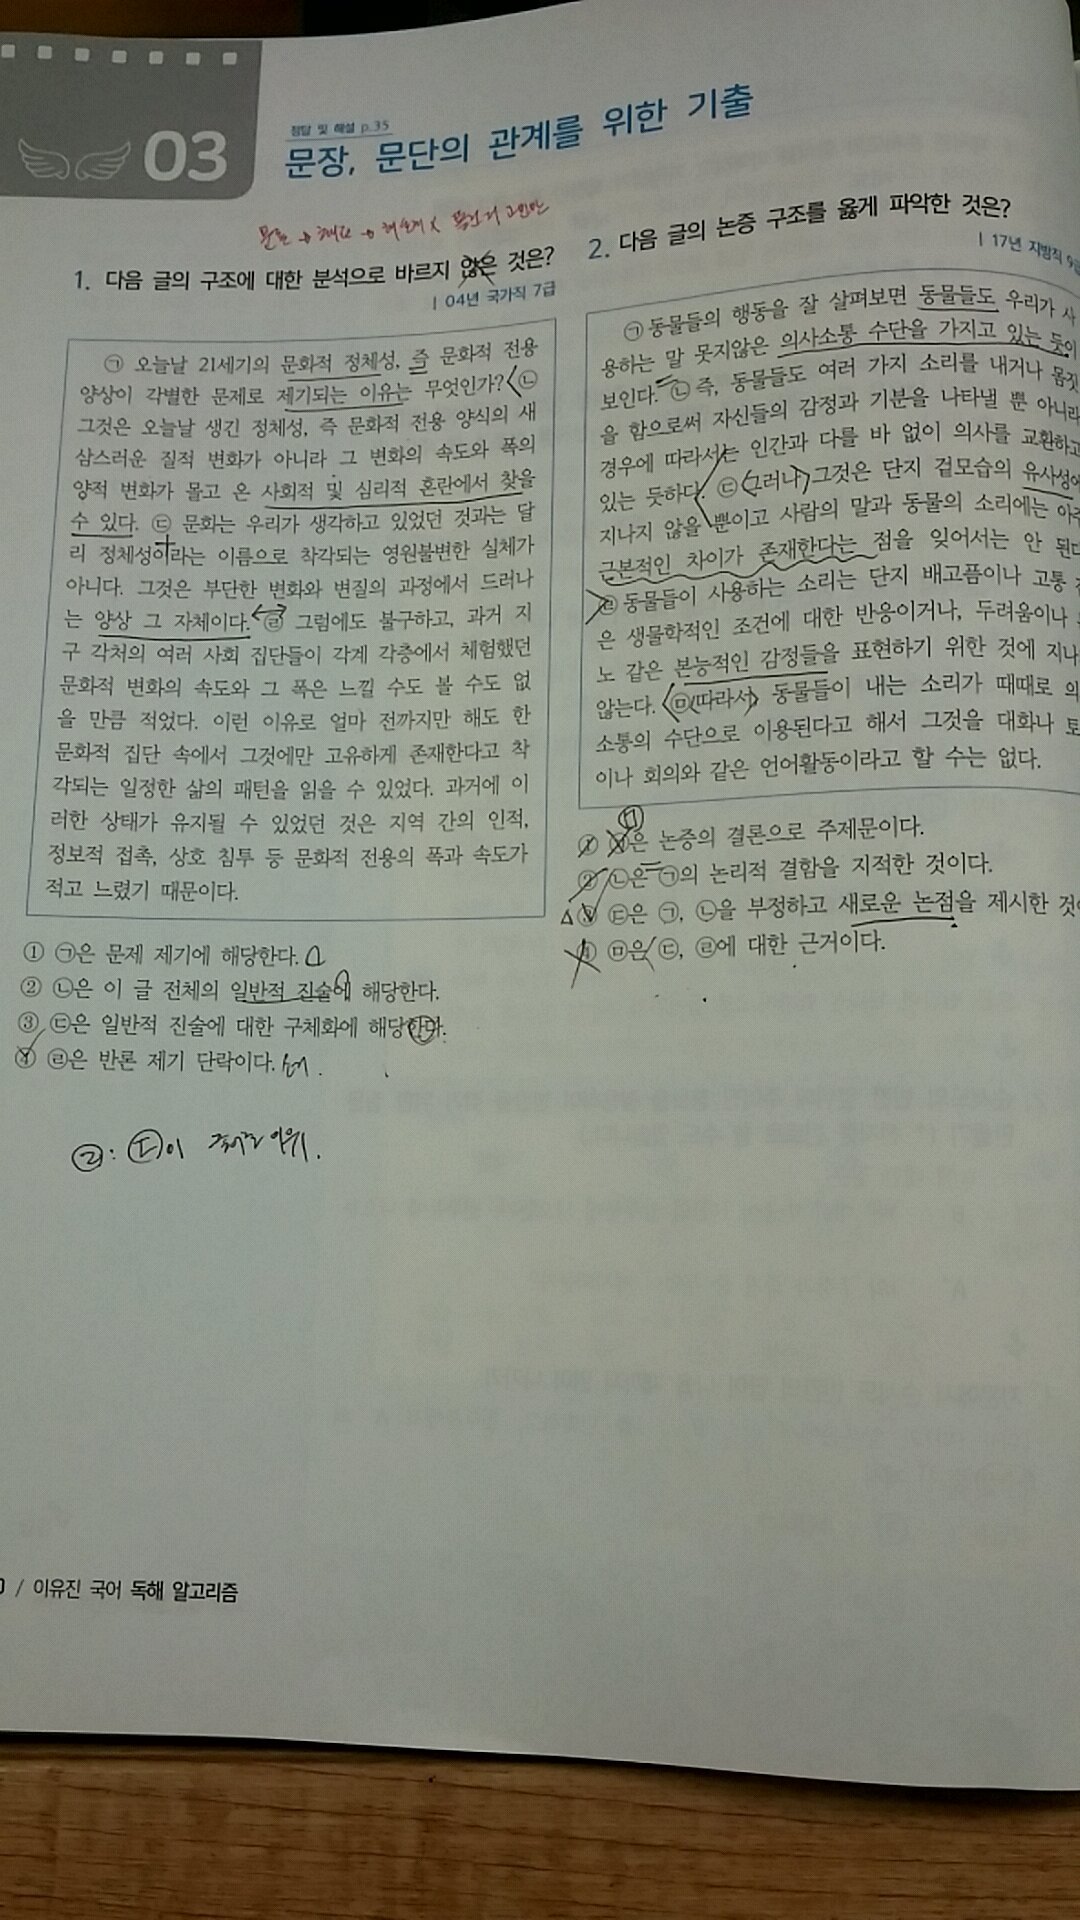 03
정답 및 해설 p.35
문장, 문단의 관계를 위한 기출
1. 다음 글의 구조에 대한 분석으로 바르지 않은 것은?
| 04년 국가직 7급
㉠ 오늘날 21세기의 문화적 정체성, 즉 문화적 전용
양상이 각별한 문제로 제기되는 이유는 무엇인가? ㉡
그것은 오늘날 생긴 정체성, 즉 문화적 전용 양식의 새
삼스러운 질적 변화가 아니라 그 변화의 속도와 폭의
양적 변화가 몰고 온 사회적 및 심리적 혼란에서 찾을
수 있다. ㉢ 문화는 우리가 생각하고 있었던 것과는 달
리 정체성이라는 이름으로 착각되는 영원불변한 실체가
아니다. 그것은 부단한 변화와 변질의 과정에서 드러나
는 양상 그 자체이다. ㉣ 그럼에도 불구하고, 과거 지
구 각처의 여러 사회 집단들이 각계 각층에서 체험했던
문화적 변화의 속도와 그 폭은 느낄 수도 볼 수도 없
을 만큼 적었다. 이런 이유로 얼마 전까지만 해도 한
문화적 집단 속에서 그것에만 고유하게 존재한다고 착
각되는 일정한 삶의 패턴을 읽을 수 있었다. 과거에 이
러한 상태가 유지될 수 있었던 것은 지역 간의 인적,
정보적 접촉, 상호 침투 등 문화적 전용의 폭과 속도가
적고 느렸기 때문이다.
① ㉠은 문제 제기에 해당한다.
② ㉡은 이 글 전체의 일반적 진술에 해당한다.
③ ㉢은 일반적 진술에 대한 구체화에 해당한다.
④ ㉣은 반론 제기 단락이다.
㉣: ㉢이
2. 다음 글의 논증 구조를 옳게 파악한 것은?
| 17년 지방직 9급
㉠ 동물들의 행동을 잘 살펴보면 동물들도 우리가 사
용하는 말 못지않은 의사소통 수단을 가지고 있는 듯이
보인다. ㉡ 즉, 동물들도 여러 가지 소리를 내거나 몸짓
을 함으로써 자신들의 감정과 기분을 나타낼 뿐 아니라
경우에 따라서는 인간과 다를 바 없이 의사를 교환하고
있는 듯하다. ㉢ 그러나 그것은 단지 겉모습의 유사성에
지나지 않을 뿐이고 사람의 말과 동물의 소리에는 아주
근본적인 차이가 존재한다는 점을 잊어서는 안 된다
㉣ 동물들이 사용하는 소리는 단지 배고픔이나 고통
은 생물학적인 조건에 대한 반응이거나, 두려움이나
노 같은 본능적인 감정들을 표현하기 위한 것에 지나
않는다. ㉤ 따라서 동물들이 내는 소리가 때때로 의
소통의 수단으로 이용된다고 해서 그것을 대화나 토
이나 회의와 같은 언어활동이라고 할 수는 없다.
㉤
① 은 논증의 결론으로 주제문이다.
② ㉡은 ㉠의 논리적 결함을 지적한 것이다.
③ ㉢은 ㉠, ㉡을 부정하고 새로운 논점을 제시한 것
④ ㉤은 ㉢, ㉣에 대한 근거이다.
0 / 이유진 국어 독해 알고리즘